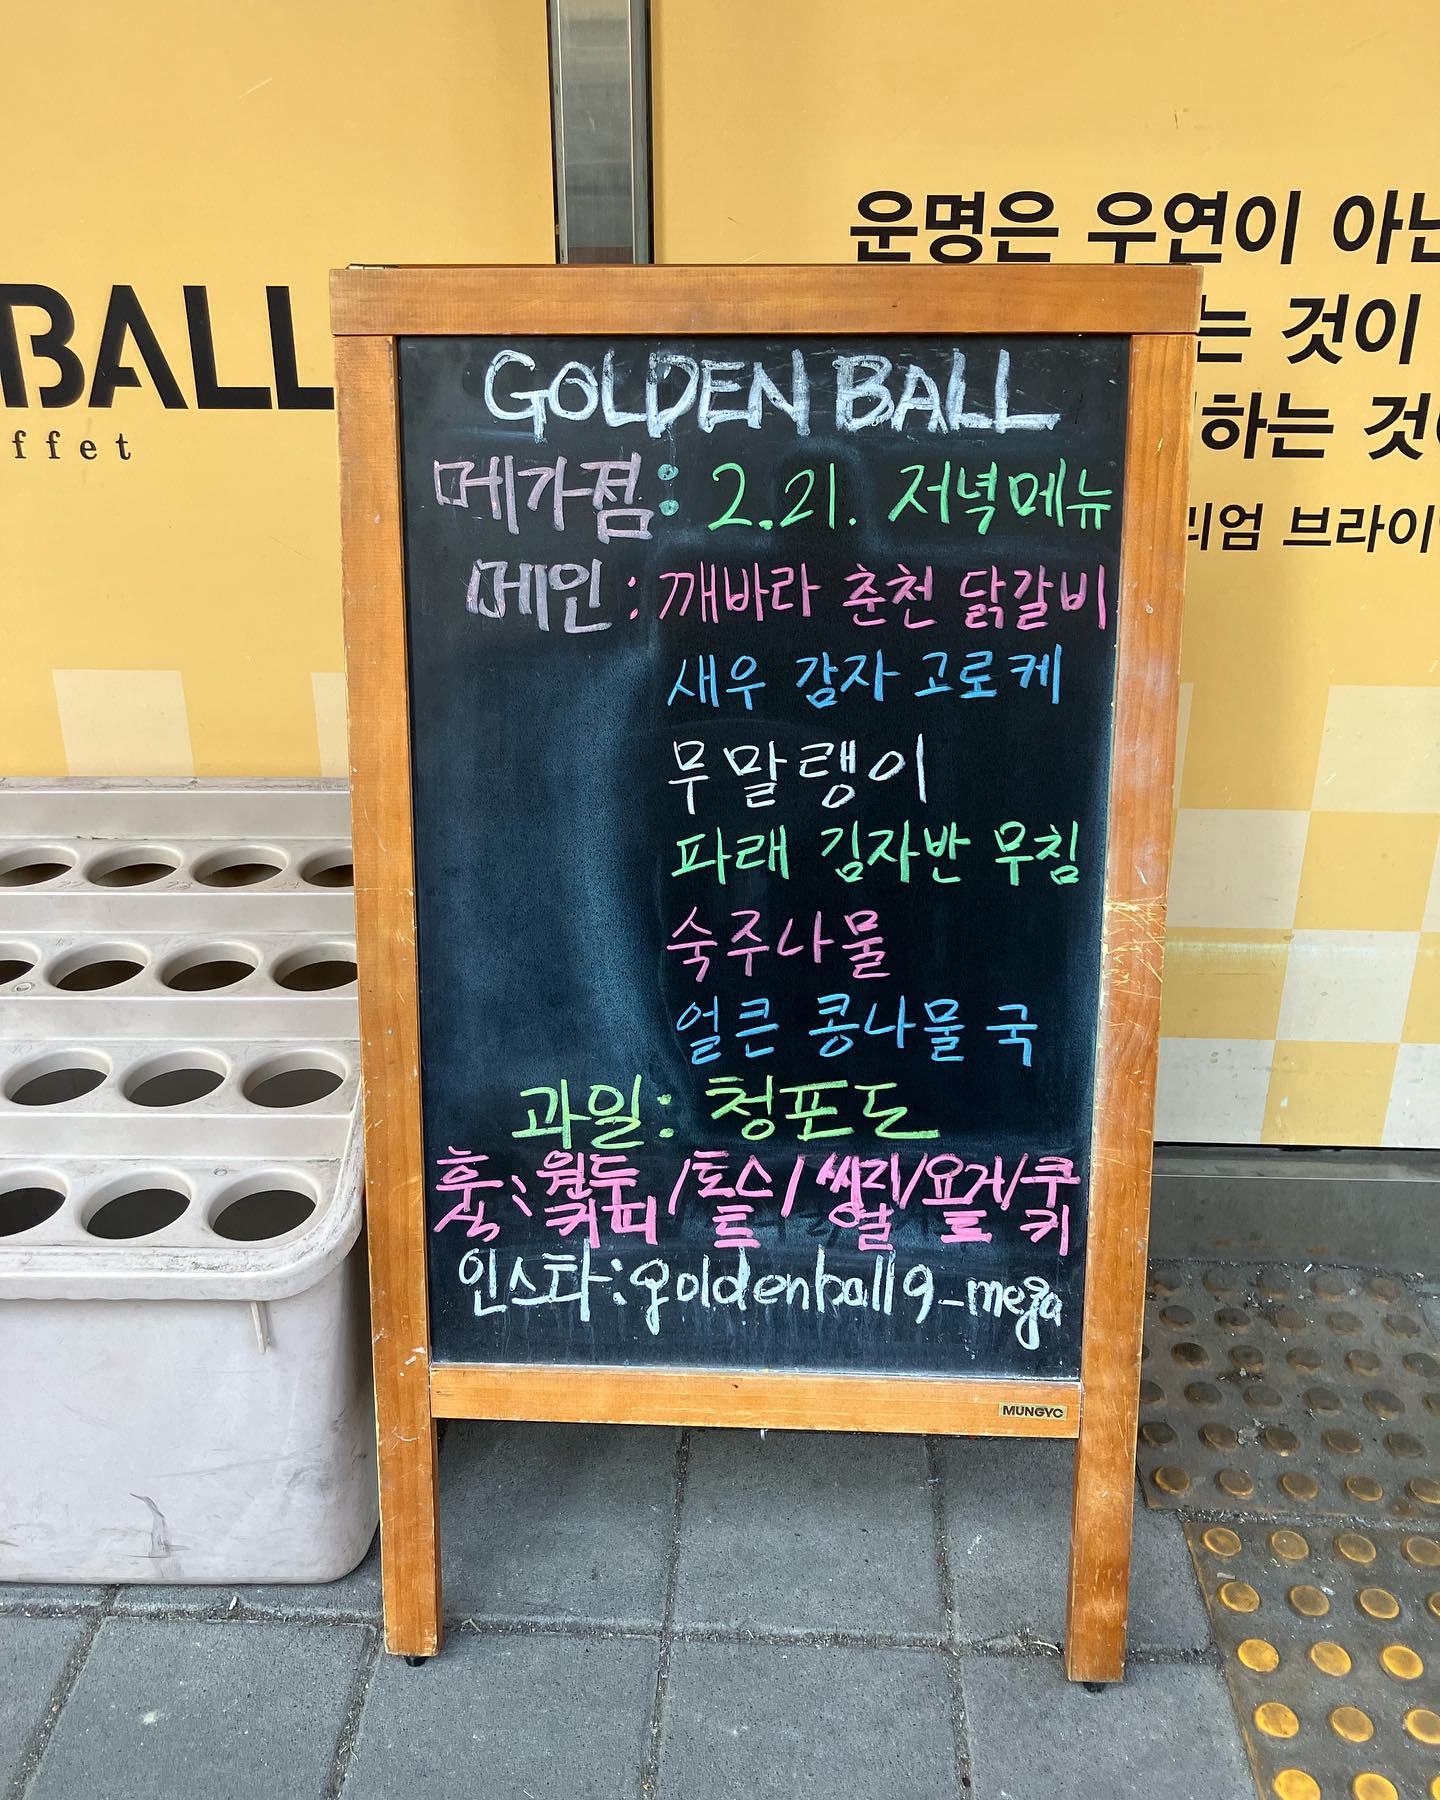 BALL
ffet
운명은 우연이 아닌
는 것이
하는 것
리엄 브라이
GOLDEN BALL
메가점: 2.21. 저녁메뉴
메인: 깨바라 춘천 닭갈비
새우 감자 고로케
무말랭이
파래 김자반 무침
숙주나물
얼큰 콩나물 국
과일: 청포도
후식: 원두커피/토스트/씽지얼/요거트/쿠키
인스타: goldenball9_mega
MUNGYO